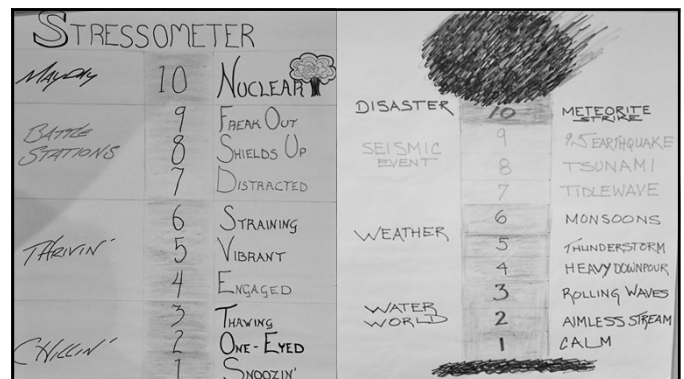 STRESSOMETER
MAYDAY 10 NUCLEAR
BATTLE STATIONS
9 FREAK OUT
8 SHIELDS UP
7 DISTRACTED
THRIVIN'
6 STRAINING
5 VIBRANT
4 ENGAGED
CHILLIN'
3 THAWING
2 ONE-EYED
1 SNOOZIN'
DISASTER 10 METEORITE STRIKE
SEISMIC EVENT
9 9.5 EARTHQUAKE
8 TSUNAMI
7 TIDLEWAVE
WEATHER
6 MONSOONS
5 THUNDERSTORM
4 HEAVY DOWNPOUR
WATER WORLD
3 ROLLING WAVES
2 AIMLESS STREAM
1 CALM